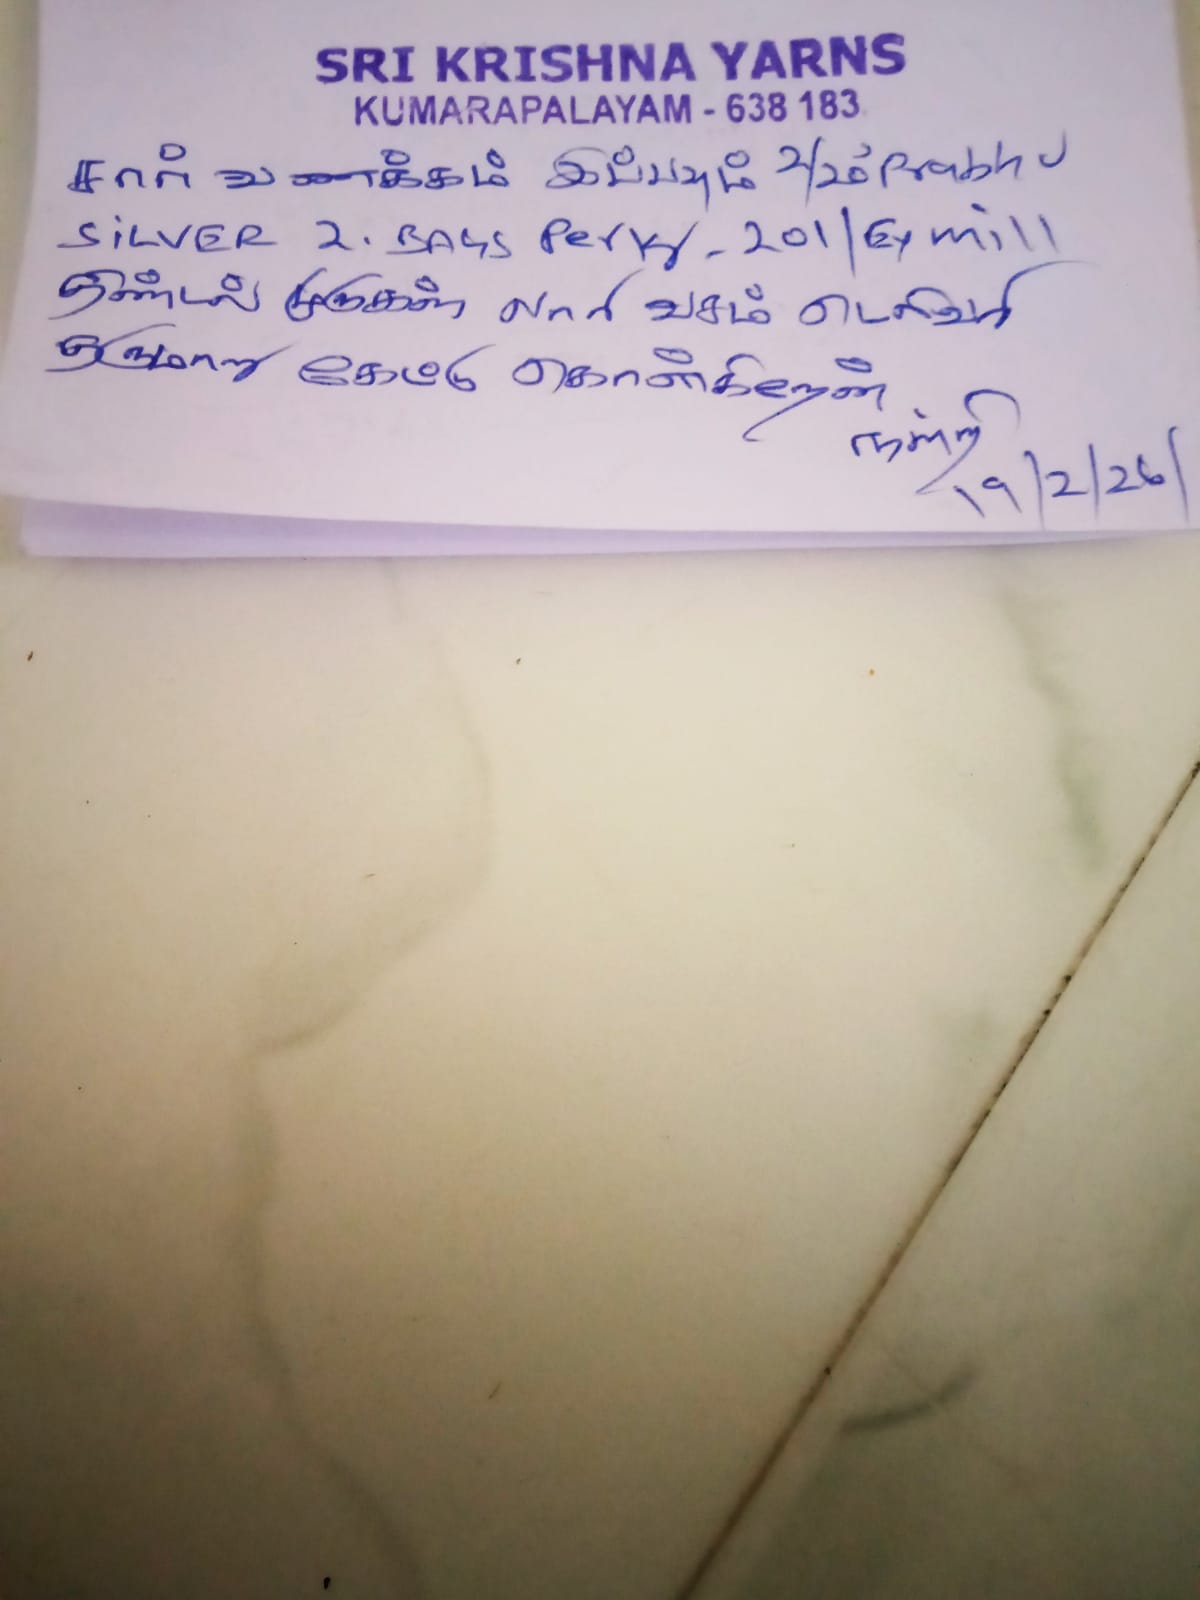 SRI KRISHNA YARNS
KUMARAPALAYAM - 638 183
சார் வணக்கம் இப்பவும் 2/20 Prabhu
SILVER 2. BAGS Per Kg - 201/ Ex mill
திண்டல் முருகன் லாரி வசம் டெலிவரி
தருமாறு கேட்டு கொள்கிறேன்
நன்றி
19/2/26